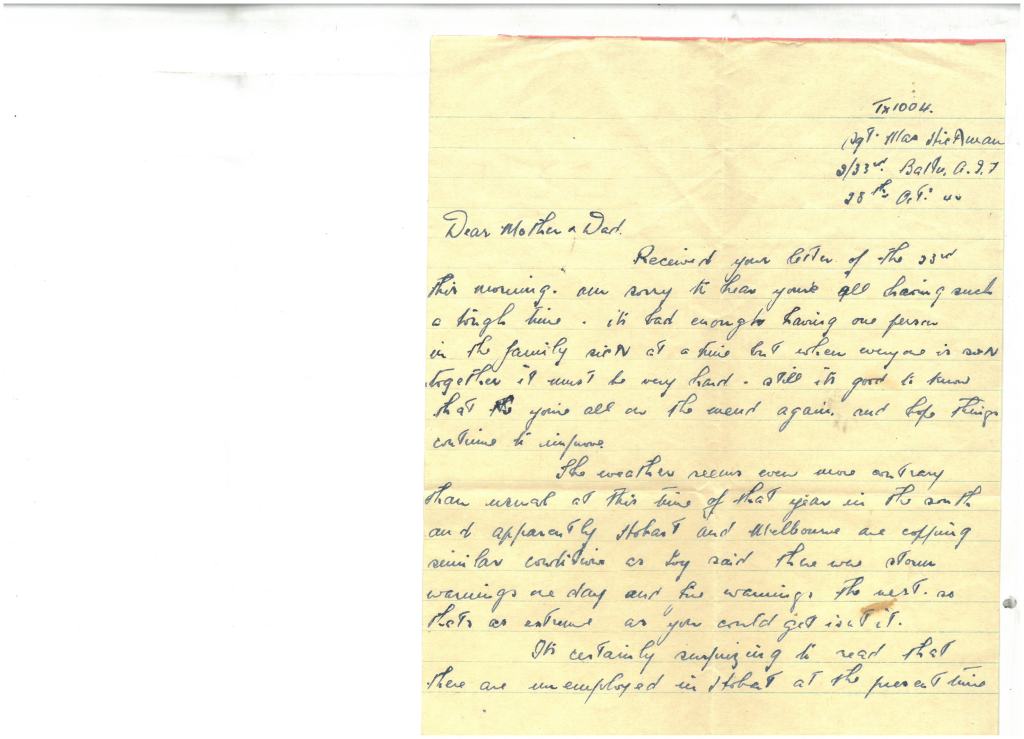 Tx1004.
Sgt. Max Hickman
2/33rd. Battn. A.I.F
28th Oct: 44
Dear Mother & Dad.
Received your letter of the 23rd
this morning. am sorry to hear youre all having such
a tough time. its bad enough having one person
in the family sick at a time but when everyone is sick
together it must be very hard. still its good to know
that youre all on the mend again. and hope things
continue to improve.
The weather seems even more contrary
than usual at this time of that year in the south
and apparently Hobart and Melbourne are copping
similar conditions as Ivy said there were storm
warnings one day and fire warnings the next. so
thats as extreme as you could get isnt it.
Its certainly surprizing to read that
there are unemployed in Hobart at the present time